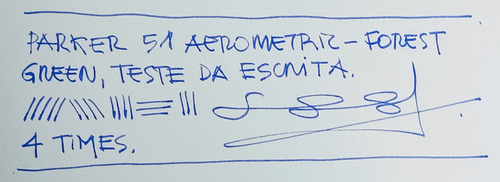 PARKER 51 AEROMETRIC - FOREST
GREEN, TESTE DA ESCRITA.
4 TIMES.